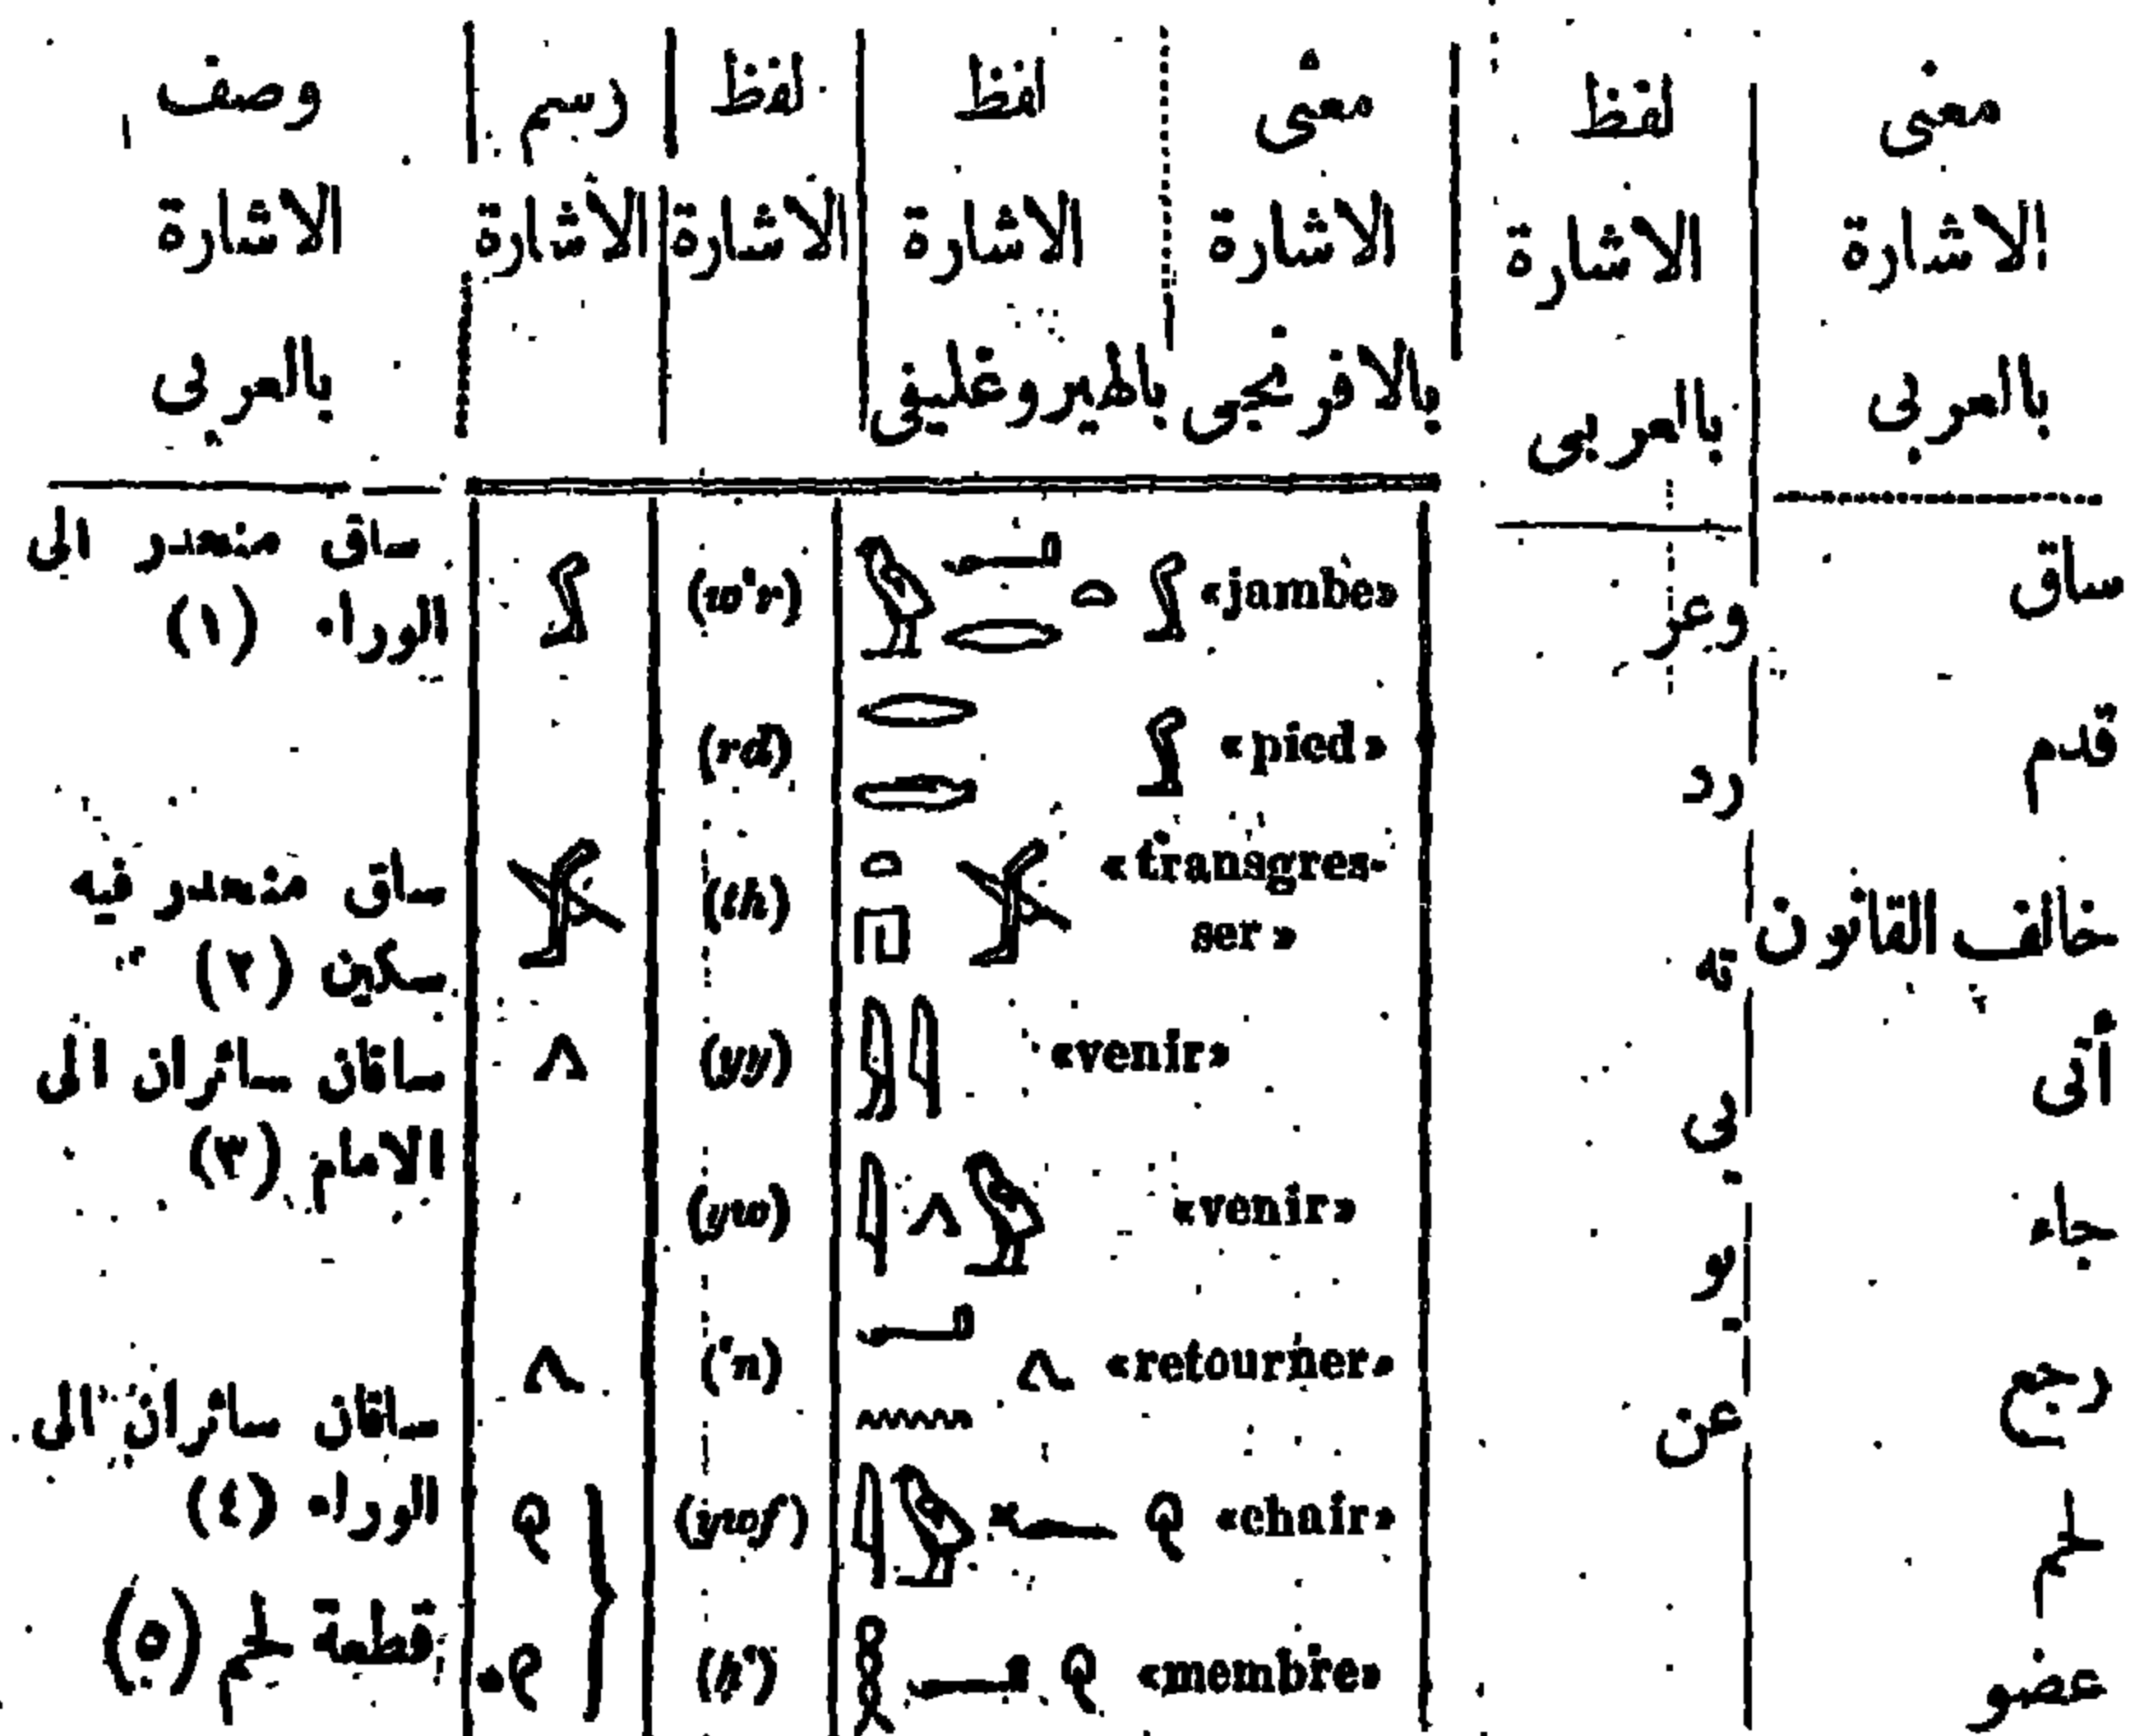 معنى الاشارة بالعربى | لفظ الاشارة بالعربى | معنى الاشارة بالافرنجى | لفظ الاشارة بالهيروغليفى | لفظ الاشارة | رسم الاشارة | وصف الاشارة بالعربى
ساق | وعر | «jambe» | (w'r) | ساق منحدر الى
الوراء (١)
قدم | رد | «pied» | (rd)
خالف القانون | ته | «transgres-
ser» | (th) | ساق منحدر فيه
سكين (٢)
أتى | يى | «venir» | (yy) | ساقان سائران الى
الامام (٣)
جاء | يو | «venir» | (yw)
رجع | عن | «retourner» | ('n) | ساقان سائران الى
الوراء (٤)
لحم | «chair» | (ywf)
عضو | «membre» | (ḥ') | قطعة لحم (٥)